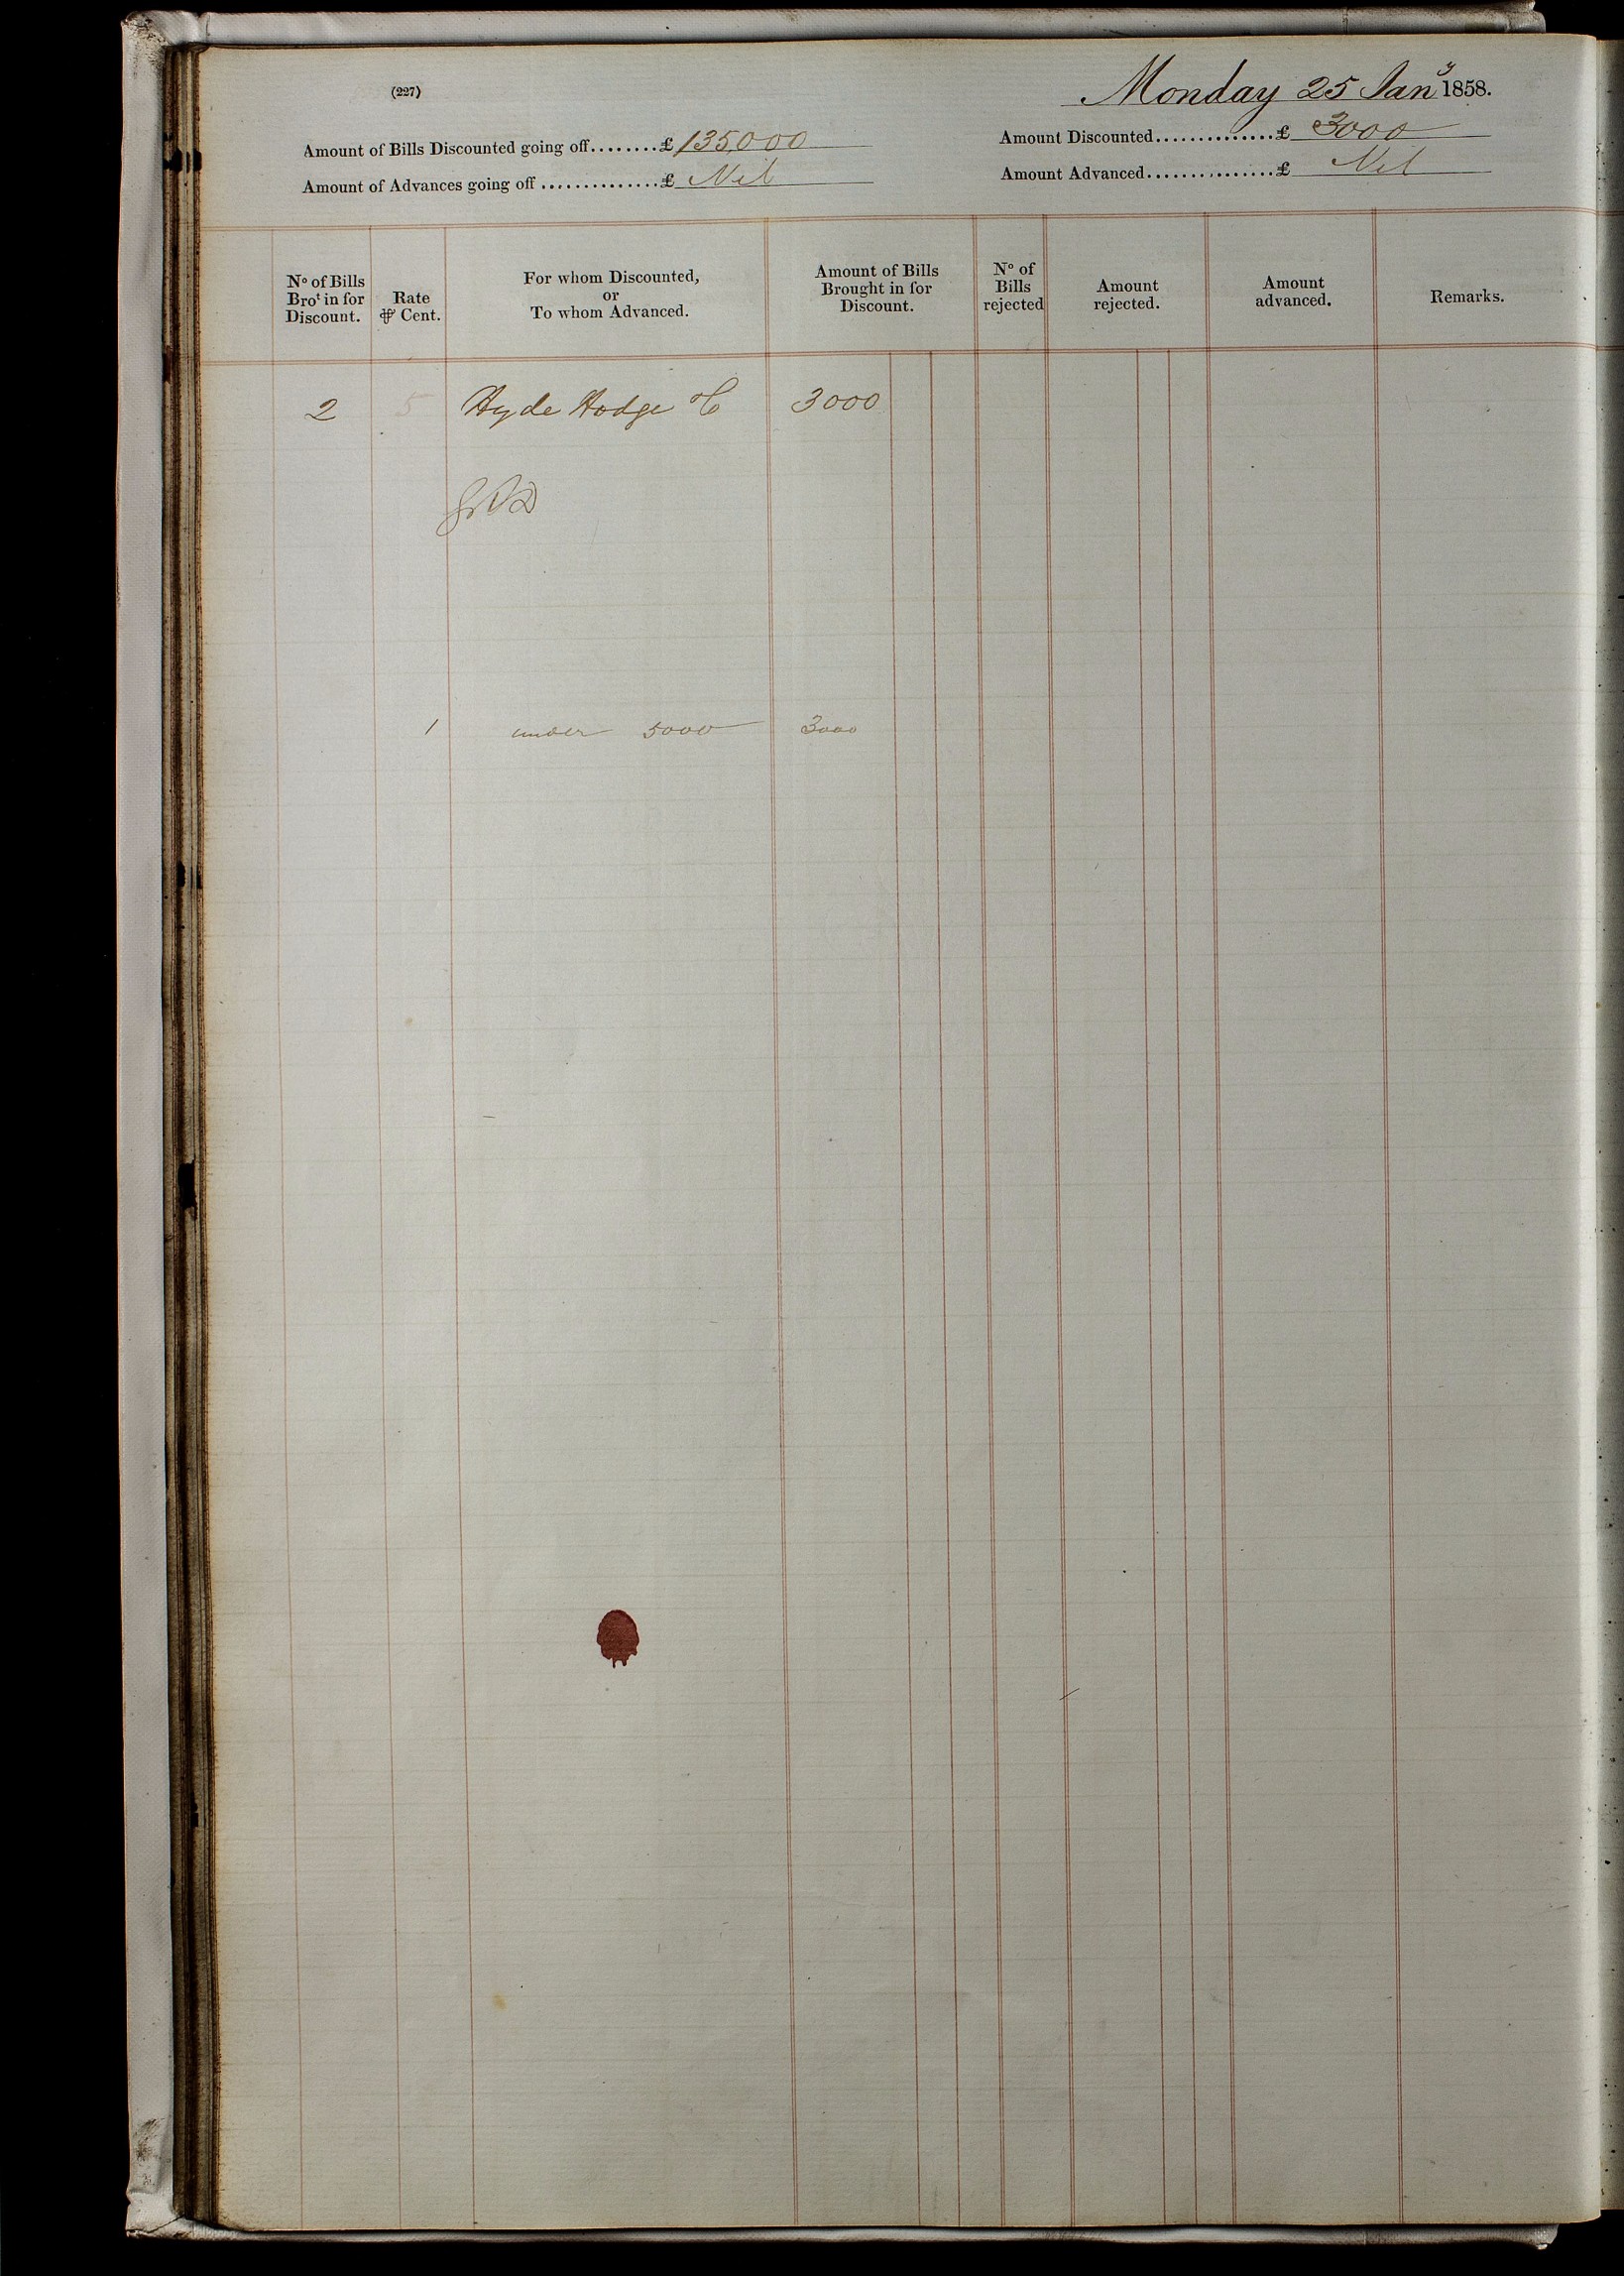 (227)
Monday 25 Jany 1858.
Amount of Bills Discounted going off........£ 135,000
Amount Discounted..............£ 3000
Amount of Advances going off ..............£ Nil
Amount Advanced...............£ Nil
No of Bills
Brot in for
Discount.
Rate
⅌ Cent.
For whom Discounted,
or
To whom Advanced.
Amount of Bills
Brought in for
Discount.
No of
Bills
rejected
Amount
rejected.
Amount
advanced.
Remarks.
2 5 Hyde Hodge & C 3000
1 under 5000 3000